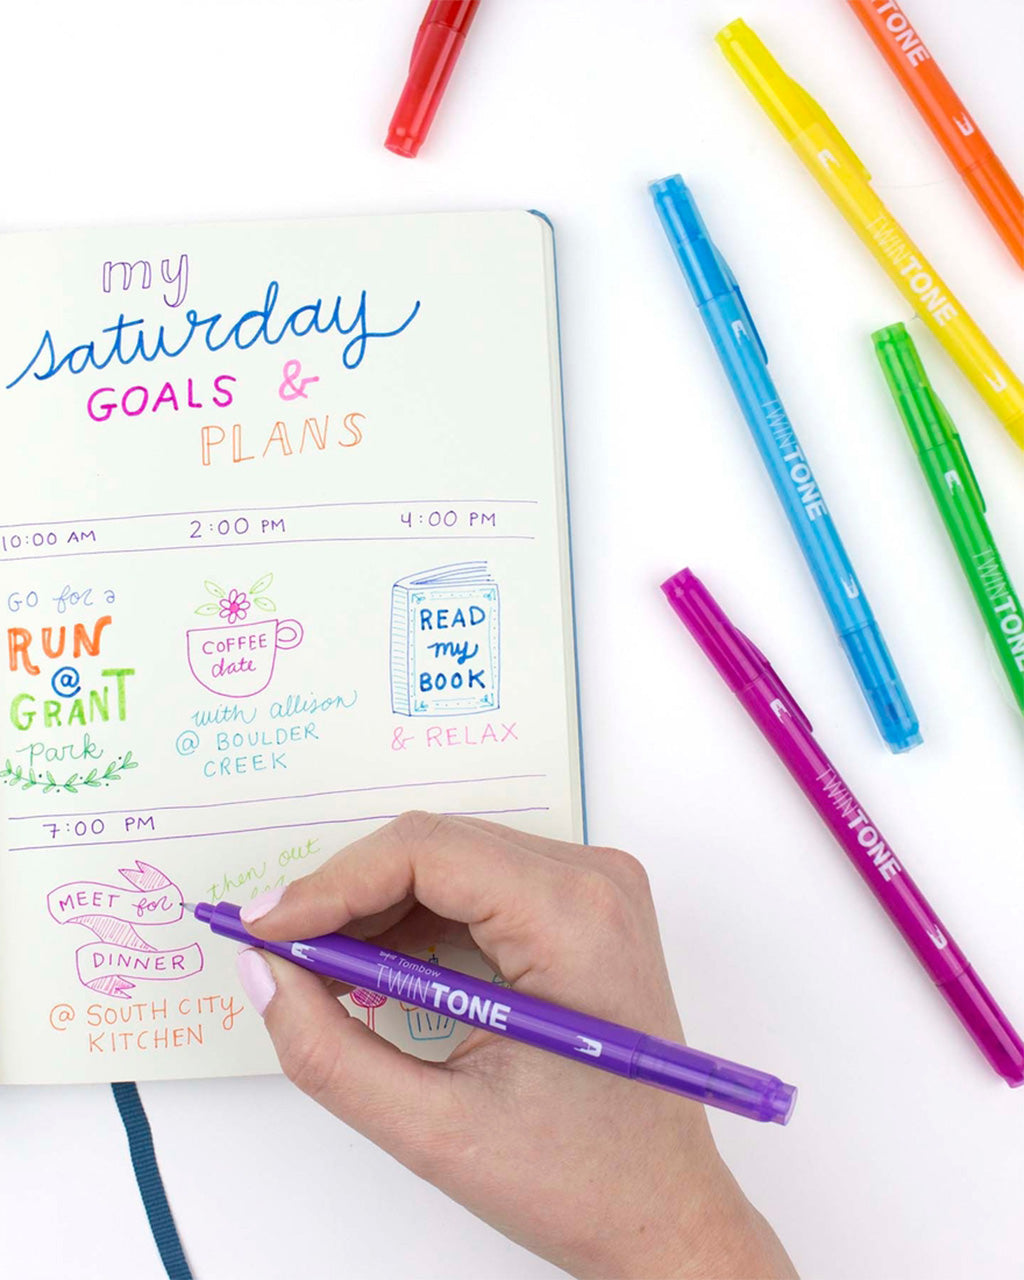 my
saturday
GOALS &
PLANS
10:00 AM
2:00 PM
4:00 PM
GO for a
RUN
@
GRANT
park
COFFEE
date
with allison
@ BOULDER
CREEK
READ
my
BOOK
& RELAX
7:00 PM
MEET for
DINNER
@ SOUTH CITY
KITCHEN
then out
Tombow
TWINTONE
TWINTONE
TWINTONE
TWINTONE
TWINTONE
TONE